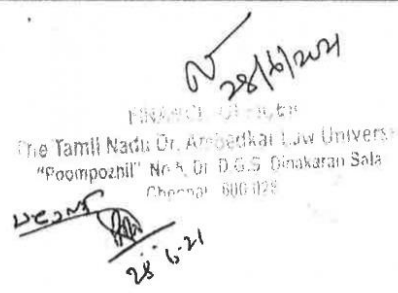 28/6/2021
FINANCE OFFICER
The Tamil Nadu Dr. Ambedkar Law Univers
"Poompozhil" No 5, Dr. D.G.S. Dinakaran Sala
Chennai 600 028
28 6-21